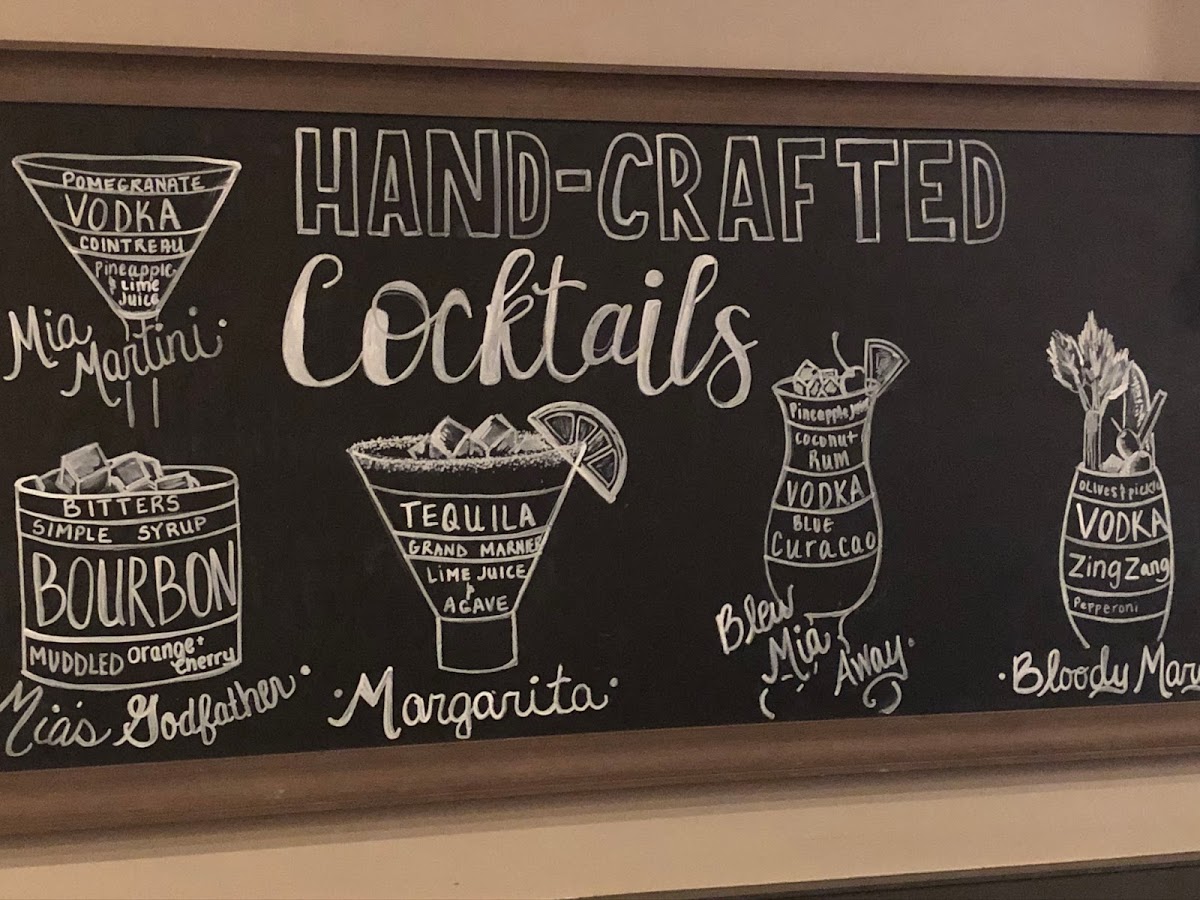 HAND-CRAFTED
Cocktails
POMEGRANATE
VODKA
COINTREAU
Pineapple
& Lime
Juice
Mia
Martini
BITTERS
SIMPLE SYRUP
BOURBON
MUDDLED orange +
cherry
Mia's Godfather
TEQUILA
GRAND MARNIER
LIME JUICE
&
AGAVE
Margarita
Pineapple
coconut
RUM
VODKA
BLUE
Curacao
Blew
Mia
Away
OLIVES & pickle
VODKA
Zing Zang
Pepperoni
Bloody Mary